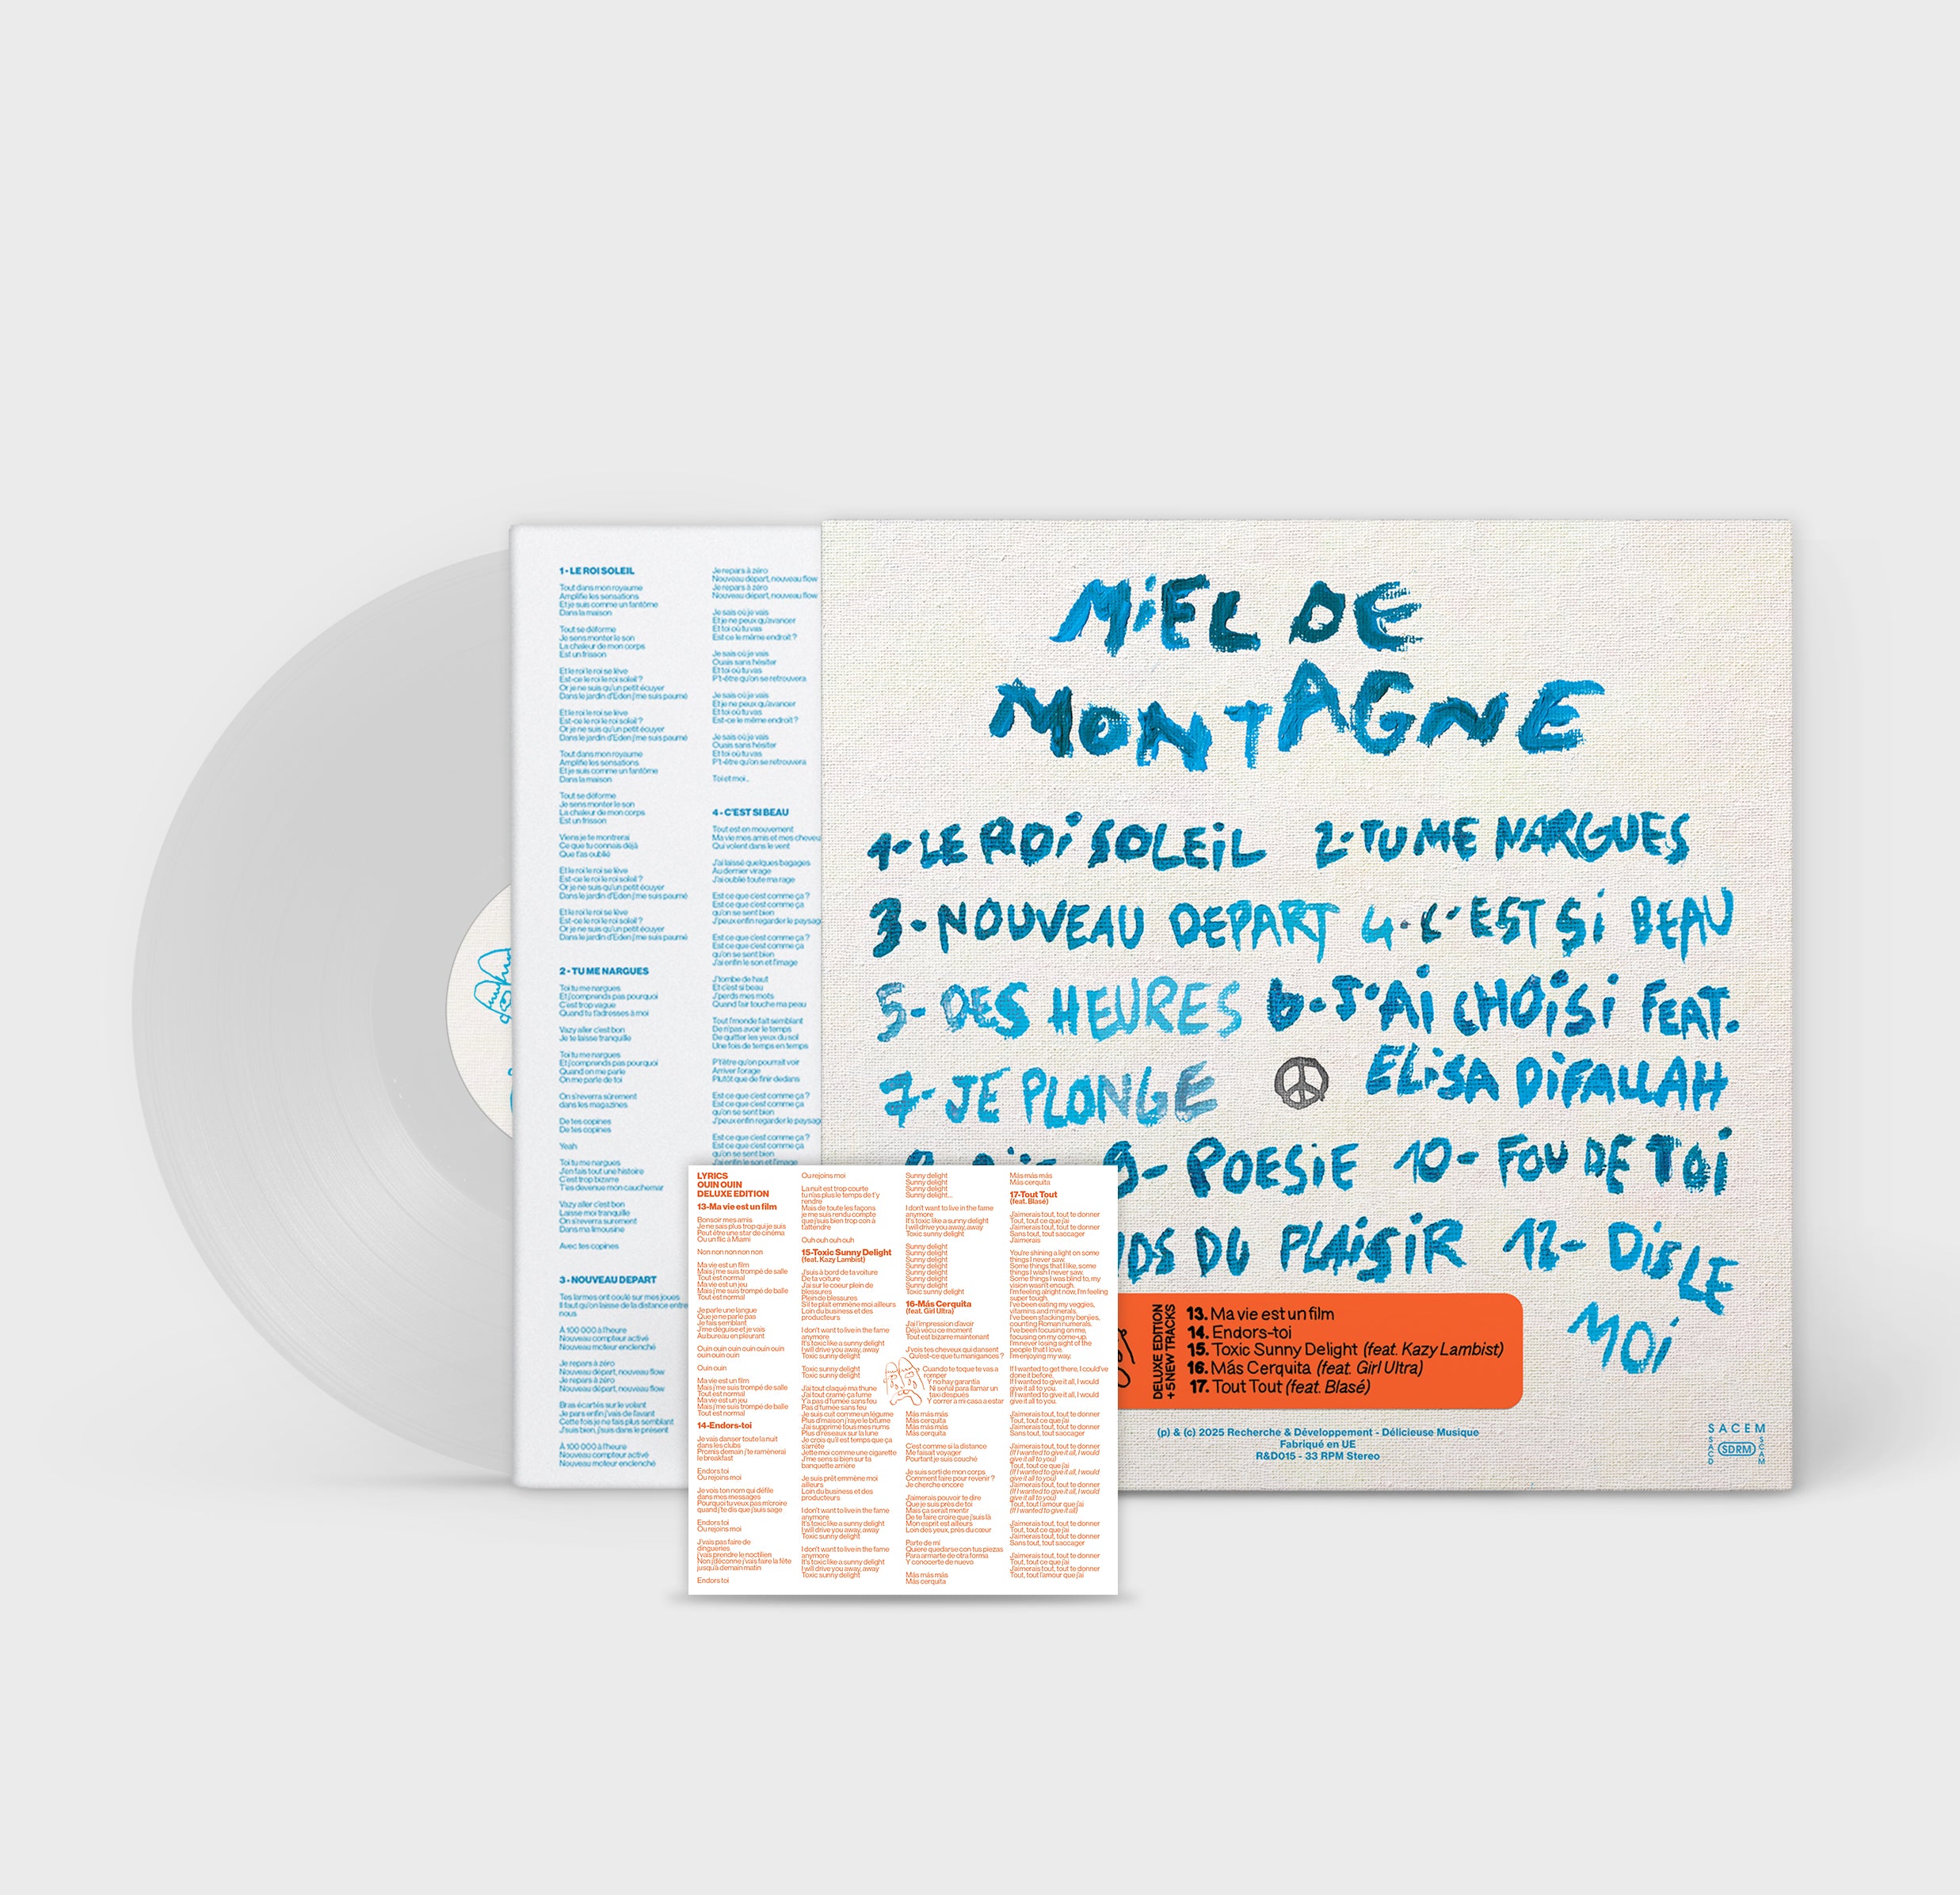 1 - LE ROI SOLEIL
Tout dans mon royaume
Amplifie les sensations
Et je suis comme un fantôme
Dans la maison
Tout se déforme
Je sens monter le son
La chaleur de mon corps
Est un frisson
Et le roi le roi se lève
Est-ce le roi le roi soleil ?
Or je ne suis qu'un petit écuyer
Dans le jardin d'Eden j'me suis paumé
Et le roi le roi se lève
Est-ce le roi le roi soleil ?
Or je ne suis qu'un petit écuyer
Dans le jardin d'Eden j'me suis paumé
Tout dans mon royaume
Amplifie les sensations
Et je suis comme un fantôme
Dans la maison
Tout se déforme
Je sens monter le son
La chaleur de mon corps
Est un frisson
Viens je te montrerai
Ce que tu connais déjà
Que t'as oublié
Et le roi le roi se lève
Est-ce le roi le roi soleil ?
Or je ne suis qu'un petit écuyer
Dans le jardin d'Eden j'me suis paumé
Et le roi le roi se lève
Est-ce le roi le roi soleil ?
Or je ne suis qu'un petit écuyer
Dans le jardin d'Eden j'me suis paumé
2 - TU ME NARGUES
Toi tu me nargues
Et j'comprends pas pourquoi
C'est trop vague
Quand tu t'adresses à moi
Vazy aller c'est bon
Je te laisse tranquille
Toi tu me nargues
Et j'comprends pas pourquoi
Quand on me parle
On me parle de toi
On s'reverra sûrement
dans les magazines
De tes copines
De tes copines
Yeah
Toi tu me nargues
J'en fais tout une histoire
C'est trop bizarre
T'es devenue mon cauchemar
Vazy aller c'est bon
Laisse moi tranquille
On s'reverra surement
Dans ma limousine
Avec tes copines
3 - NOUVEAU DEPART
Tes larmes ont coulé sur mes joues
Il faut qu'on laisse de la distance entre
nous
À 100 000 à l'heure
Nouveau compteur activé
Nouveau moteur enclenché
Je repars à zéro
Nouveau départ, nouveau flow
Je repars à zéro
Nouveau départ, nouveau flow
Bras écartés sur le volant
Je pars enfin j'vais de l'avant
Cette fois je ne fais plus semblant
J'suis bien, j'suis dans le présent
À 100 000 à l'heure
Nouveau compteur activé
Nouveau moteur enclenché
Je repars à zéro
Nouveau départ, nouveau flow
Je repars à zéro
Nouveau départ, nouveau flow
Je sais où je vais
Et je ne peux qu'avancer
Et toi où tu vas
Est ce le même endroit ?
Je sais où je vais
Ouais sans hésiter
Et toi où tu vas
P't-être qu'on se retrouvera
Je sais où je vais
Et je ne peux qu'avancer
Et toi où tu vas
Est-ce le même endroit ?
Je sais où je vais
Ouais sans hésiter
Et toi où tu vas
P't-être qu'on se retrouvera
Toi et moi...
4 - C'EST SI BEAU
Tout est en mouvement
Ma vie mes amis et mes cheveu
Qui volent dans le vent
J'ai laissé quelques bagages
Au dernier virage
J'ai oublié toute ma rage
Est ce que c'est comme ça ?
Est ce que c'est comme ça
qu'on se sent bien
J'peux enfin regarder le paysag
Est ce que c'est comme ça ?
Est ce que c'est comme ça
qu'on se sent bien
J'ai enfin le son et l'image
J'tombe de haut
Et c'est si beau
J'perds mes mots
Quand l'air touche ma peau
Tout l'monde fait semblant
De n'pas avoir le temps
De quitter les yeux du sol
Une fois de temps en temps
P't'être qu'on pourrait voir
Arriver l'orage
Plutôt que de finir dedans
Est ce que c'est comme ça ?
Est ce que c'est comme ça
qu'on se sent bien
J'peux enfin regarder le paysag
Est ce que c'est comme ça ?
Est ce que c'est comme ça
qu'on se sent bien
J'ai enfin le son et l'image
MiEL DE
MONTAGNE
1- LE ROi SOLEiL 2- TU ME NARGUES
3- NOUVEAU DEPART 4- C'EST Si BEAU
5- DES HEURES 6- J'Ai CHOiSi FEAT.
7- JE PLONGE ELiSA DiFALLAH
9- POESiE 10- FOU DE TOi
DU PLAiSiR 12- DiS LE
MOi
LYRICS
OUIN OUIN
DELUXE EDITION
13-Ma vie est un film
Bonsoir mes amis
Je ne sais plus trop qui je suis
Peut être une star de cinéma
Ou un flic à Miami
Non non non non non
Ma vie est un film
Mais j'me suis trompé de salle
Tout est normal
Ma vie est un jeu
Mais j'me suis trompé de balle
Tout est normal
Je parle une langue
Que je ne parle pas
Je fais semblant
J'me déguise et je vais
Au bureau en pleurant
Ouin ouin ouin ouin ouin ouin
ouin ouin ouin
Ouin ouin
Ma vie est un film
Mais j'me suis trompé de salle
Tout est normal
Ma vie est un jeu
Mais j'me suis trompé de balle
Tout est normal
14-Endors-toi
Je vais danser toute la nuit
dans les clubs
Promis demain j'te ramènerai
le breakfast
Endors toi
Ou rejoins moi
Je vois ton nom qui défile
dans mes messages
Pourquoi tu veux pas m'croire
quand j'te dis que j'suis sage
Endors toi
Ou rejoins moi
J'vais pas faire de
dingueries
j'vais prendre le noctilien
Non j'déconne j'vais faire la fête
jusqu'à demain matin
Endors toi
Ou rejoins moi
La nuit est trop courte
tu n'as plus le temps de t'y
rendre
Mais de toute les façons
je me suis rendu compte
que j'suis bien trop con à
t'attendre
Ouh ouh ouh ouh
15-Toxic Sunny Delight
(feat. Kazy Lambist)
J'suis à bord de ta voiture
De ta voiture
J'ai sur le coeur plein de
blessures
Plein de blessures
S'il te plait emmène moi ailleurs
Loin du business et des
producteurs
I don't want to live in the fame
anymore
It's toxic like a sunny delight
I will drive you away, away
Toxic sunny delight
Toxic sunny delight
Toxic sunny delight
J'ai tout claqué ma thune
J'ai tout cramé ça fume
Y'a pas d'fumée sans feu
Pas d'fumée sans feu
Je suis cuit comme un légume
Plus d'maison j'raye le bitume
J'ai supprimé tous mes nums
Plus d'réseaux sur la lune
Je crois qu'il est temps que ça
s'arrête
Jette moi comme une cigarette
J'me sens si bien sur ta
banquette arrière
Je suis prêt emmène moi
ailleurs
Loin du business et des
producteurs
I don't want to live in the fame
anymore
It's toxic like a sunny delight
I will drive you away, away
Toxic sunny delight
I don't want to live in the fame
anymore
It's toxic like a sunny delight
I will drive you away, away
Toxic sunny delight
Sunny delight
Sunny delight
Sunny delight
Sunny delight...
I don't want to live in the fame
anymore
It's toxic like a sunny delight
I will drive you away, away
Toxic sunny delight
Sunny delight
Sunny delight
Sunny delight
Sunny delight
Sunny delight
Sunny delight
Sunny delight
Toxic sunny delight
16-Más Cerquita
(feat. Girl Ultra)
J'ai l'impression d'avoir
Déjà vécu ce moment
Tout est bizarre maintenant
J'vois tes cheveux qui dansent
Qu'est-ce que tu manigances ?
Cuando te toque te vas a
romper
Y no hay garantía
Ni señal para llamar un
taxi después
Y correr a mi casa a estar
Más más más
Más cerquita
Más más más
Más cerquita
C'est comme si la distance
Me faisait voyager
Pourtant je suis couché
Je suis sorti de mon corps
Comment faire pour revenir ?
Je cherche encore
J'aimerais pouvoir te dire
Que je suis près de toi
Mais ça serait mentir
De te faire croire que j'suis là
Mon esprit est ailleurs
Loin des yeux, près du cœur
Parte de mi
Quiere quedarse con tus piezas
Para armarte de otra forma
Y conocerte de nuevo
Más más más
Más cerquita
Más más más
Más cerquita
17-Tout Tout
(feat. Blasé)
J'aimerais tout, tout te donner
Tout, tout ce que j'ai
J'aimerais tout, tout te donner
Sans tout, tout saccager
J'aimerais
You're shining a light on some
things I never saw
Some things that I like, some
things I wish I never saw.
Some things I was blind to, my
vision wasn't enough.
I'm feeling alright now, I'm feeling
super tough.
I've been eating my veggies,
vitamins and minerals.
I've been stacking my bonjes,
counting Roman numerals.
I've been focusing on me,
focusing on my come-up.
I'm never losing sight of the
people that I love.
I'm enjoying my way.
If I wanted to get there, I could've
done it before.
If I wanted to give it all, I would
give it all to you.
If I wanted to give it all, I would
give it all to you.
J'aimerais tout, tout te donner
Tout, tout ce que j'ai
J'aimerais tout, tout te donner
Sans tout, tout saccager
J'aimerais tout, tout te donner
(If I wanted to give it all, I would
give it all to you)
Tout, tout ce que j'ai
(If I wanted to give it all, I would
give it all to you)
J'aimerais tout, tout te donner
(If I wanted to give it all, I would
give it all to you)
Tout, tout l'amour que j'ai
(If I wanted to give it all)
J'aimerais tout, tout te donner
Tout, tout ce que j'ai
J'aimerais tout, tout te donner
Sans tout, tout saccager
J'aimerais tout, tout te donner
Tout, tout ce que j'ai
J'aimerais tout, tout te donner
Tout, tout l'amour que j'ai
DELUXE EDITION
+ 5 NEW TRACKS
13. Ma vie est un film
14. Endors-toi
15. Toxic Sunny Delight (feat. Kazy Lambist)
16. Más Cerquita (feat. Girl Ultra)
17. Tout Tout (feat. Blasé)
(p) & (c) 2025 Recherche & Développement - Délicieuse Musique
Fabriqué en UE
R&D015 - 33 RPM Stereo
SACEM
SACD
SDRM
SCAM